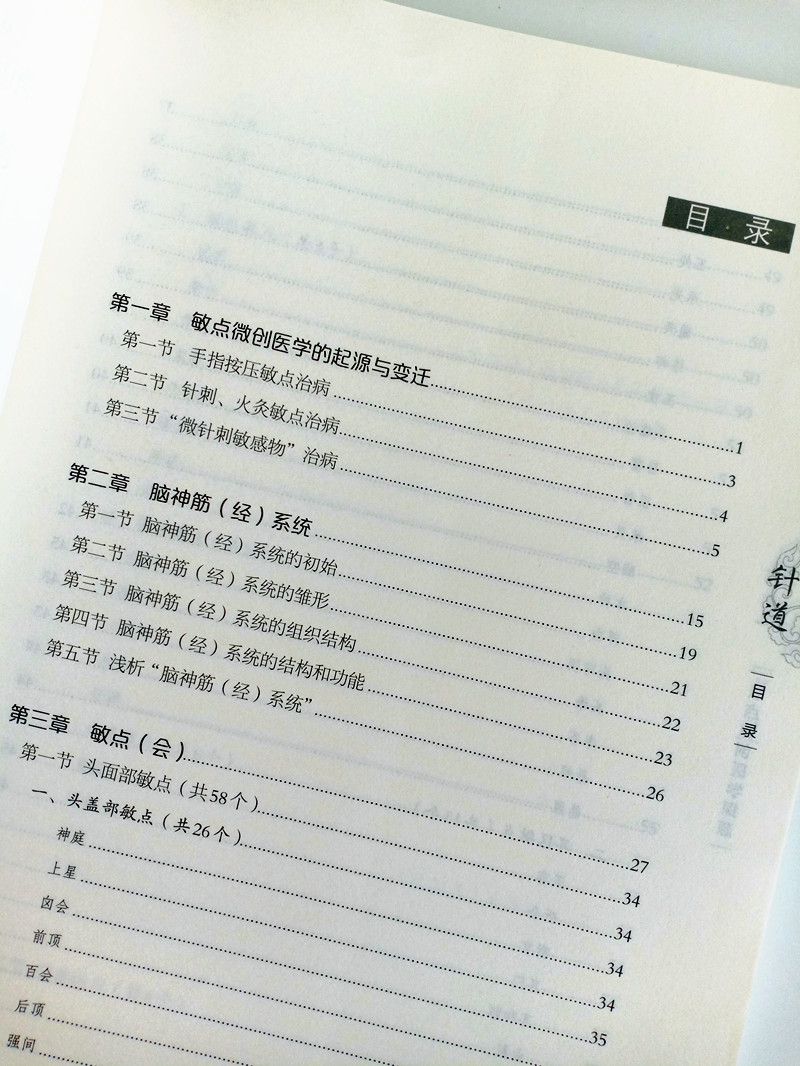 目录
第一章 敏点微创医学的起源与变迁……1
第一节 手指按压敏点治病……3
第二节 针刺、火灸敏点治病……4
第三节 “微针刺敏感物”治病……5
第二章 脑神筋（经）系统……15
第一节 脑神筋（经）系统的初始……19
第二节 脑神筋（经）系统的雏形……21
第三节 脑神筋（经）系统的组织结构……22
第四节 脑神筋（经）系统的结构和功能……23
第五节 浅析“脑神筋（经）系统”……26
第三章 敏点（会）……27
第一节 头面部敏点（共58个）……34
一、头盖部敏点（共26个）……34
神庭……34
上星……34
囟会……35
前顶……
百会……
后顶……
强间……
针道
目录